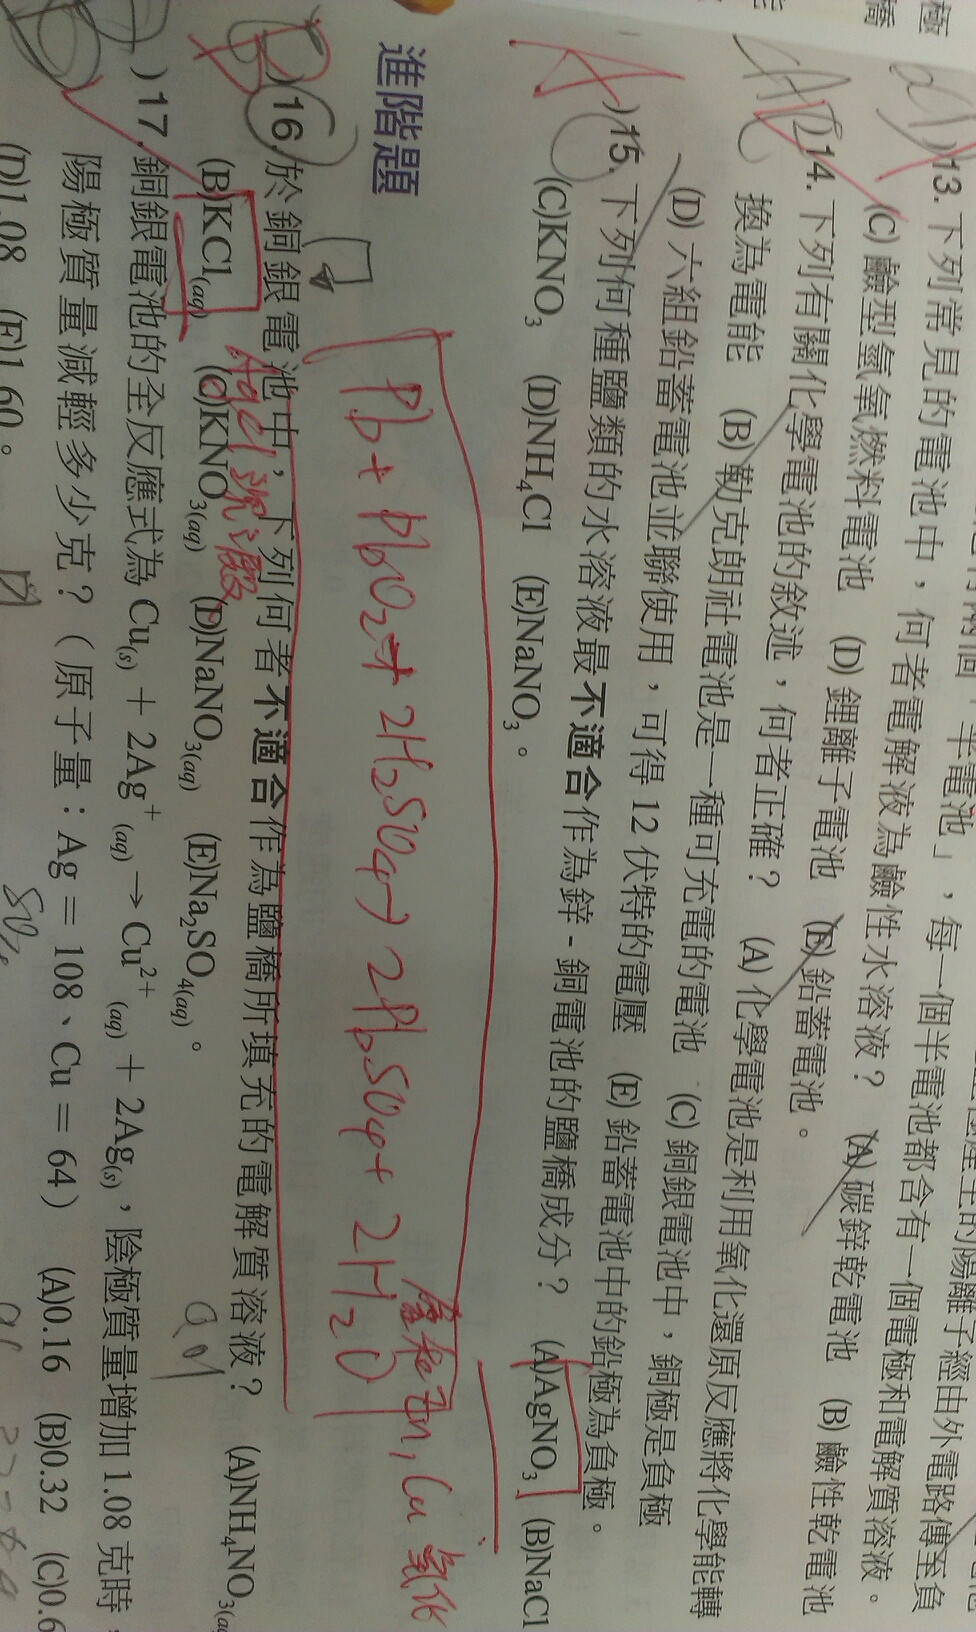 極
橋
能
半電池」，每一個半電池都含有一個電極和電解質溶液。
陽離子經由外電路傳至負
13. 下列常見的電池中，何者電解液為鹼性水溶液？ (A) 碳鋅乾電池 (B) 鹼性乾電池
(C) 鹼型氫氧燃料電池 (D) 鋰離子電池 (E) 鉛蓄電池。
14. 下列有關化學電池的敘述，何者正確？ (A) 化學電池是利用氧化還原反應將化學能轉
換為電能 (B) 勒克朗社電池是一種可充電的電池 (C) 銅銀電池中，銅極是負極
(D) 六組鉛蓄電池並聯使用，可得 12 伏特的電壓 (E) 鉛蓄電池中的鉛極為負極。
A
)15. 下列何種鹽類的水溶液最不適合作為鋅 - 銅電池的鹽橋成分？ (A)AgNO₃ (B)NaCl
(C)KNO₃ (D)NH₄Cl (E)NaNO₃。
Zn, Cu 氧化
Pb + PbO₂ + 2H₂SO₄ → 2PbSO₄ + 2H₂O
進階題
B
)16. 於銅銀電池中，下列何者不適合作為鹽橋所填充的電解質溶液？ (A)NH₄NO₃(aq)
AgCl 沉澱
(B)KCl(aq) (C)KNO₃(aq) (D)NaNO₃(aq) (E)Na₂SO₄(aq)。
)17. 銅銀電池的全反應式為 Cu(s) + 2Ag⁺(aq) → Cu²⁺(aq) + 2Ag(s)，陰極質量增加 1.08 克時，
陽極質量減輕多少克？（原子量：Ag = 108、Cu = 64） (A)0.16 (B)0.32 (C)0.6
(D)1.08 (E)1.60。